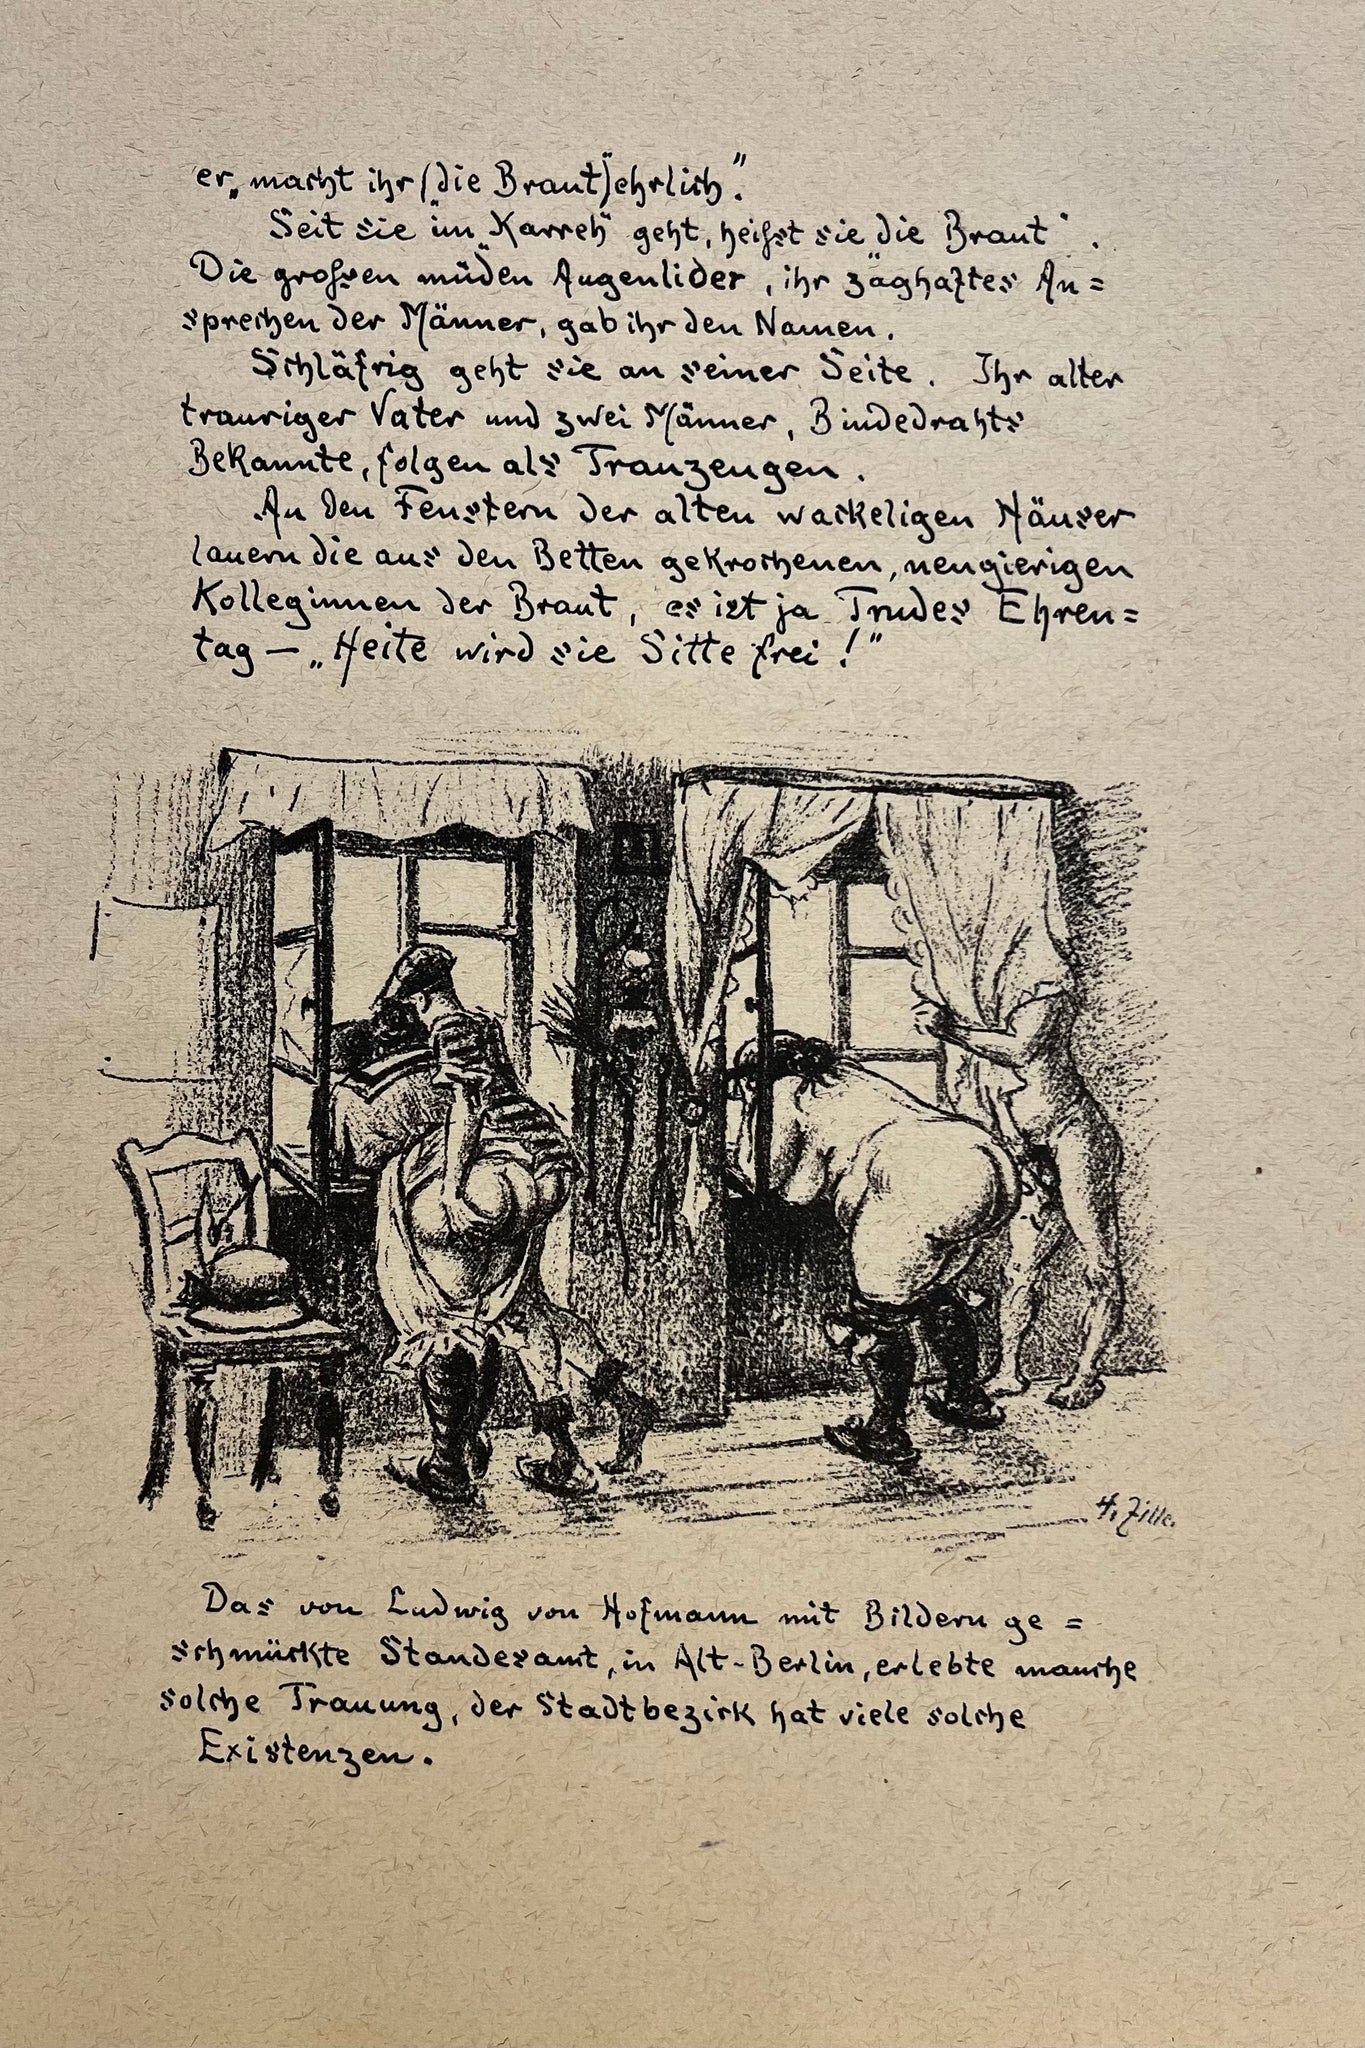 er „macht ihr (die Braut) ehrlich".
Seit sie "im Karreh" geht, heißt sie die Braut".
Die großen müden Augenlider, ihr zaghaftes An=
sprechen der Männer, gab ihr den Namen.
Schläfrig geht sie an seiner Seite. Ihr alter
trauriger Vater und zwei Männer, Bindedrahts
Bekannte, folgen als Trauzeugen.
An den Fenstern der alten wackeligen Häuser
lauern die aus den Betten gekrochenen, neugierigen
Kolleginnen der Braut, es ist ja Trudes Ehren=
tag — „Heite wird sie Sitte frei!"
H. Zille.
Das von Ludwig von Hofmann mit Bildern ge=
schmückte Standesamt, in Alt-Berlin, erlebte manche
solche Trauung, der Stadtbezirk hat viele solche
Existenzen.